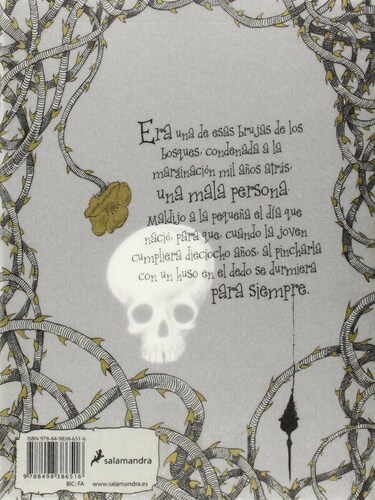 Era una de esas brujas de los
bosques, condenada a la
marginación mil años atrás,
una mala persona.
Maldijo a la pequeña el día que
nació, para que, cuando la joven
cumpliera dieciocho años, al pincharla
con un huso en el dedo se durmiera
para siempre.
ISBN 978-84-9838-651-6
9 788498 386516
BIC: FA
salamandra
www.salamandra.es